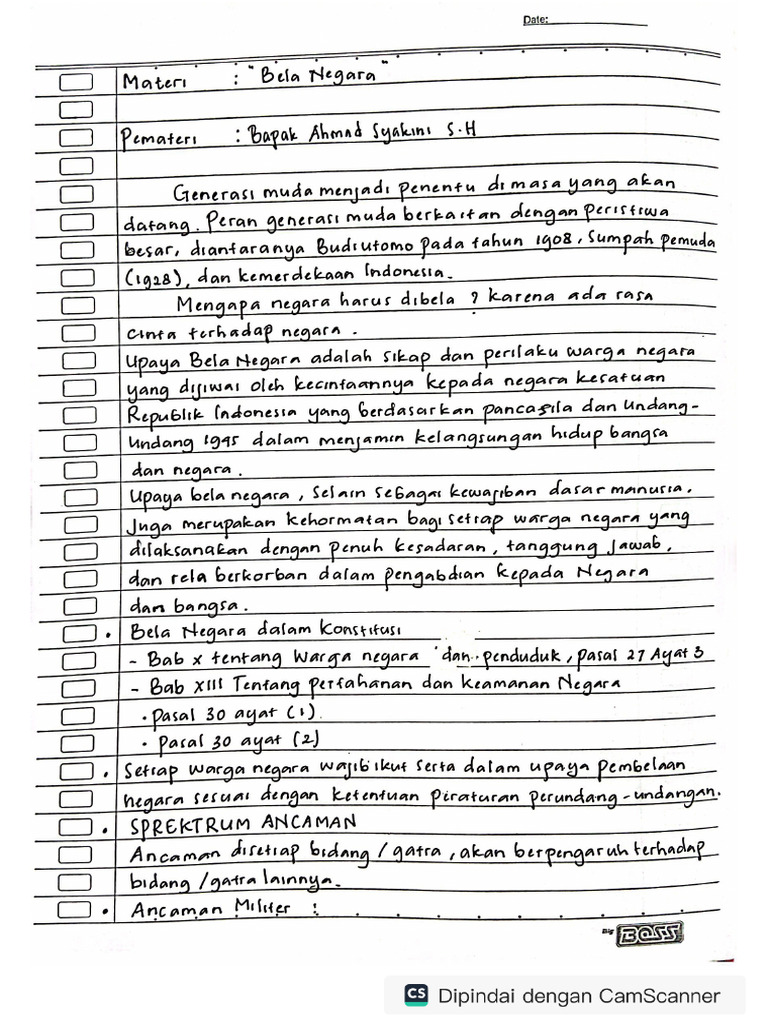 Date:
Materi : "Bela Negara"
Pemateri : Bapak Ahmad Syakini S.H
Generasi muda menjadi penentu di masa yang akan
datang. Peran generasi muda berkaitan dengan peristiwa
besar, diantaranya Budiutomo pada tahun 1908, Sumpah pemuda
(1928), dan kemerdekaan Indonesia.
Mengapa negara harus dibela ? karena ada rasa
cinta terhadap negara.
Upaya Bela Negara adalah sikap dan perilaku warga negara
yang dijiwai oleh kecintaannya kepada negara kesatuan
Republik Indonesia yang berdasarkan pancasila dan Undang-
Undang 1945 dalam menjamin kelangsungan hidup bangsa
dan negara.
Upaya bela negara, selain sebagai kewajiban dasar manusia,
Juga merupakan kehormatan bagi setiap warga negara yang
dilaksanakan dengan penuh kesadaran, tanggung jawab,
dan rela berkorban dalam pengabdian kepada Negara
dan bangsa.
• Bela Negara dalam Konstitusi
- Bab X tentang Warga negara dan penduduk, pasal 27 Ayat 3
- Bab XIII Tentang pertahanan dan Keamanan Negara
• pasal 30 ayat (1)
• pasal 30 ayat (2)
• Setiap warga negara wajib ikut serta dalam upaya pembelaan
negara sesuai dengan ketentuan piraturan perundang-undangan.
• SPREKTRUM ANCAMAN
Ancaman disetiap bidang / gatra, akan berpengaruh terhadap
bidang / gatra lainnya.
• Ancaman Militer :
Big BOSS
CS Dipindai dengan CamScanner